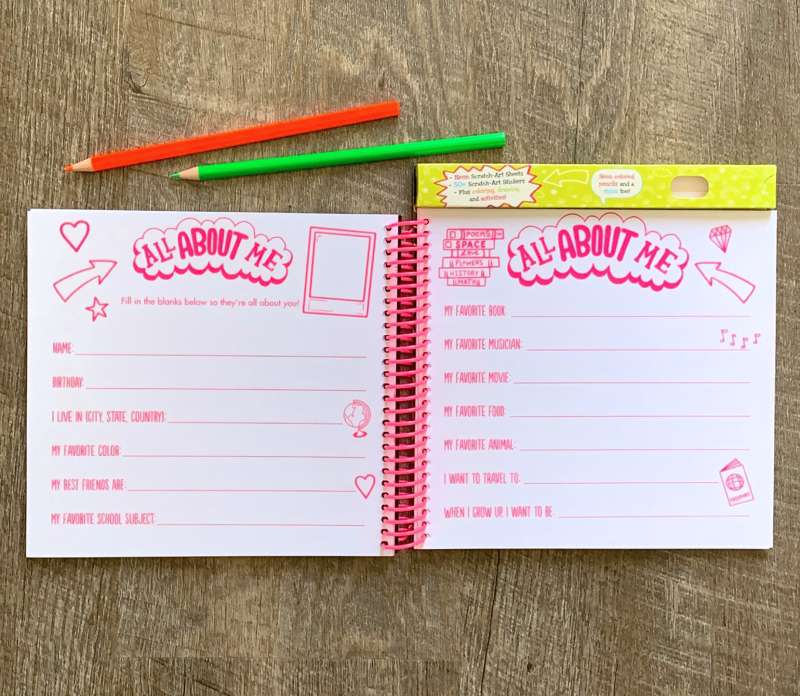 - Neon Scratch-Art Sheets
- 50+ Scratch-Art Stickers
- Plus coloring, drawing,
and activities!
Neon colored
pencils and a
too!
ALL ABOUT ME
Fill in the blanks below so they're all about you!
NAME:
BIRTHDAY:
I LIVE IN (CITY, STATE, COUNTRY):
MY FAVORITE COLOR:
MY BEST FRIENDS ARE:
MY FAVORITE SCHOOL SUBJECT:
POEMS
SPACE
FLOWERS
HISTORY
MATH
ALL ABOUT ME
MY FAVORITE BOOK:
MY FAVORITE MUSICIAN:
MY FAVORITE MOVIE:
MY FAVORITE FOOD:
MY FAVORITE ANIMAL:
I WANT TO TRAVEL TO:
WHEN I GROW UP, I WANT TO BE: